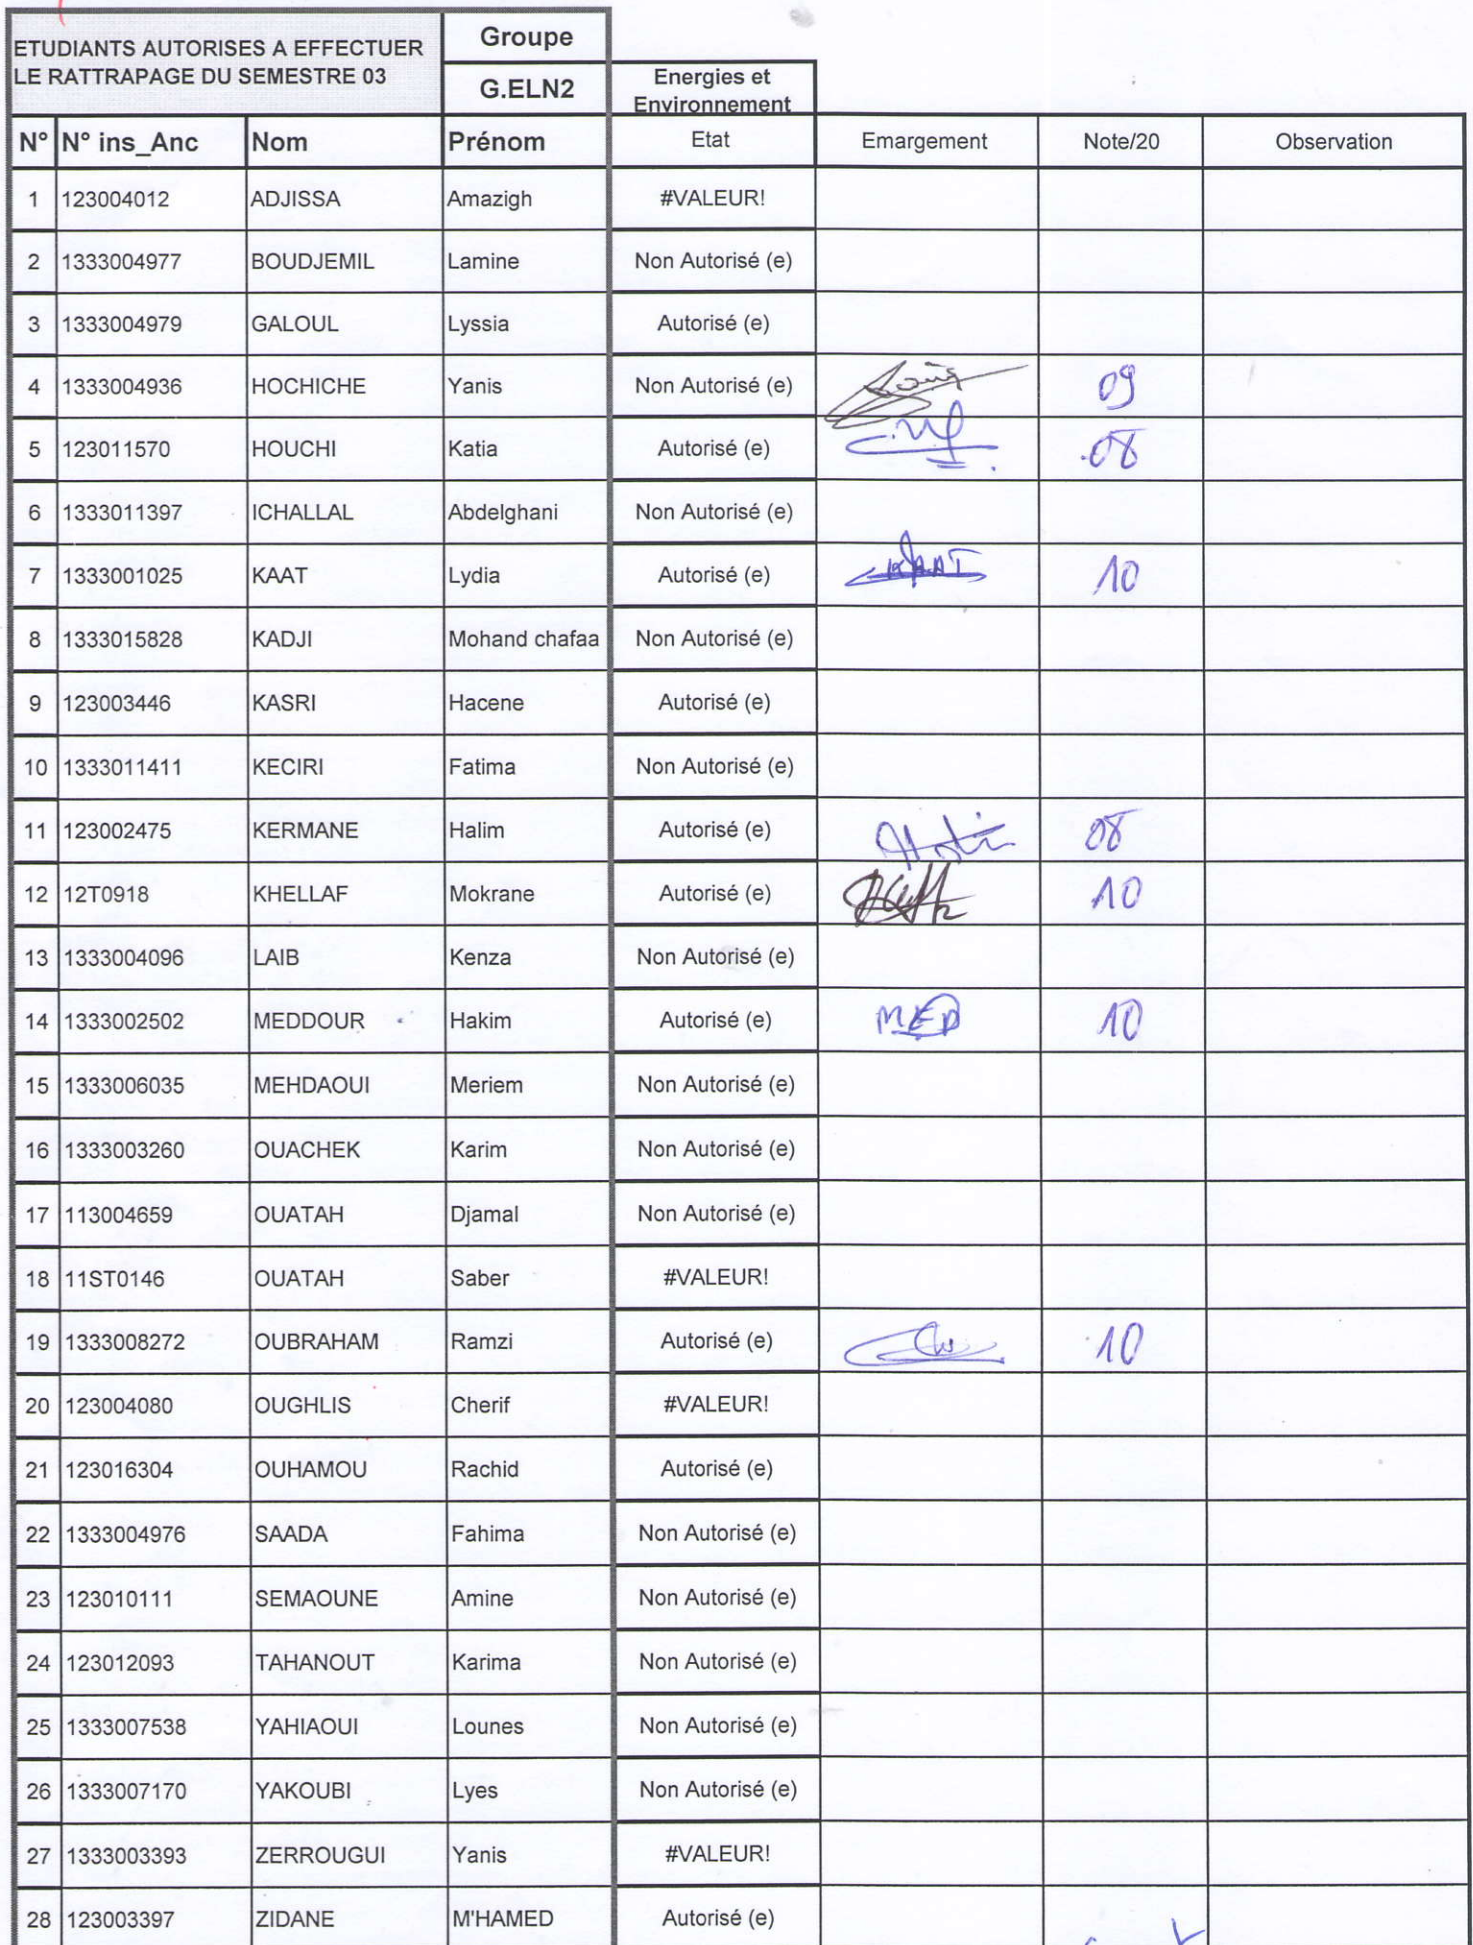 ETUDIANTS AUTORISES A EFFECTUER
LE RATTRAPAGE DU SEMESTRE 03
Groupe
G.ELN2
Energies et
Environnement
N° N° ins_Anc Nom Prénom Etat Emargement Note/20 Observation
1 123004012 ADJISSA Amazigh #VALEUR!
2 1333004977 BOUDJEMIL Lamine Non Autorisé (e)
3 1333004979 GALOUL Lyssia Autorisé (e)
4 1333004936 HOCHICHE Yanis Non Autorisé (e) 09
5 123011570 HOUCHI Katia Autorisé (e) 08
6 1333011397 ICHALLAL Abdelghani Non Autorisé (e)
7 1333001025 KAAT Lydia Autorisé (e) KAAT 10
8 1333015828 KADJI Mohand chafaa Non Autorisé (e)
9 123003446 KASRI Hacene Autorisé (e)
10 1333011411 KECIRI Fatima Non Autorisé (e)
11 123002475 KERMANE Halim Autorisé (e) 08
12 12T0918 KHELLAF Mokrane Autorisé (e) 10
13 1333004096 LAIB Kenza Non Autorisé (e)
14 1333002502 MEDDOUR Hakim Autorisé (e) MED 10
15 1333006035 MEHDAOUI Meriem Non Autorisé (e)
16 1333003260 OUACHEK Karim Non Autorisé (e)
17 113004659 OUATAH Djamal Non Autorisé (e)
18 11ST0146 OUATAH Saber #VALEUR!
19 1333008272 OUBRAHAM Ramzi Autorisé (e) 10
20 123004080 OUGHLIS Cherif #VALEUR!
21 123016304 OUHAMOU Rachid Autorisé (e)
22 1333004976 SAADA Fahima Non Autorisé (e)
23 123010111 SEMAOUNE Amine Non Autorisé (e)
24 123012093 TAHANOUT Karima Non Autorisé (e)
25 1333007538 YAHIAOUI Lounes Non Autorisé (e)
26 1333007170 YAKOUBI Lyes Non Autorisé (e)
27 1333003393 ZERROUGUI Yanis #VALEUR!
28 123003397 ZIDANE M'HAMED Autorisé (e)